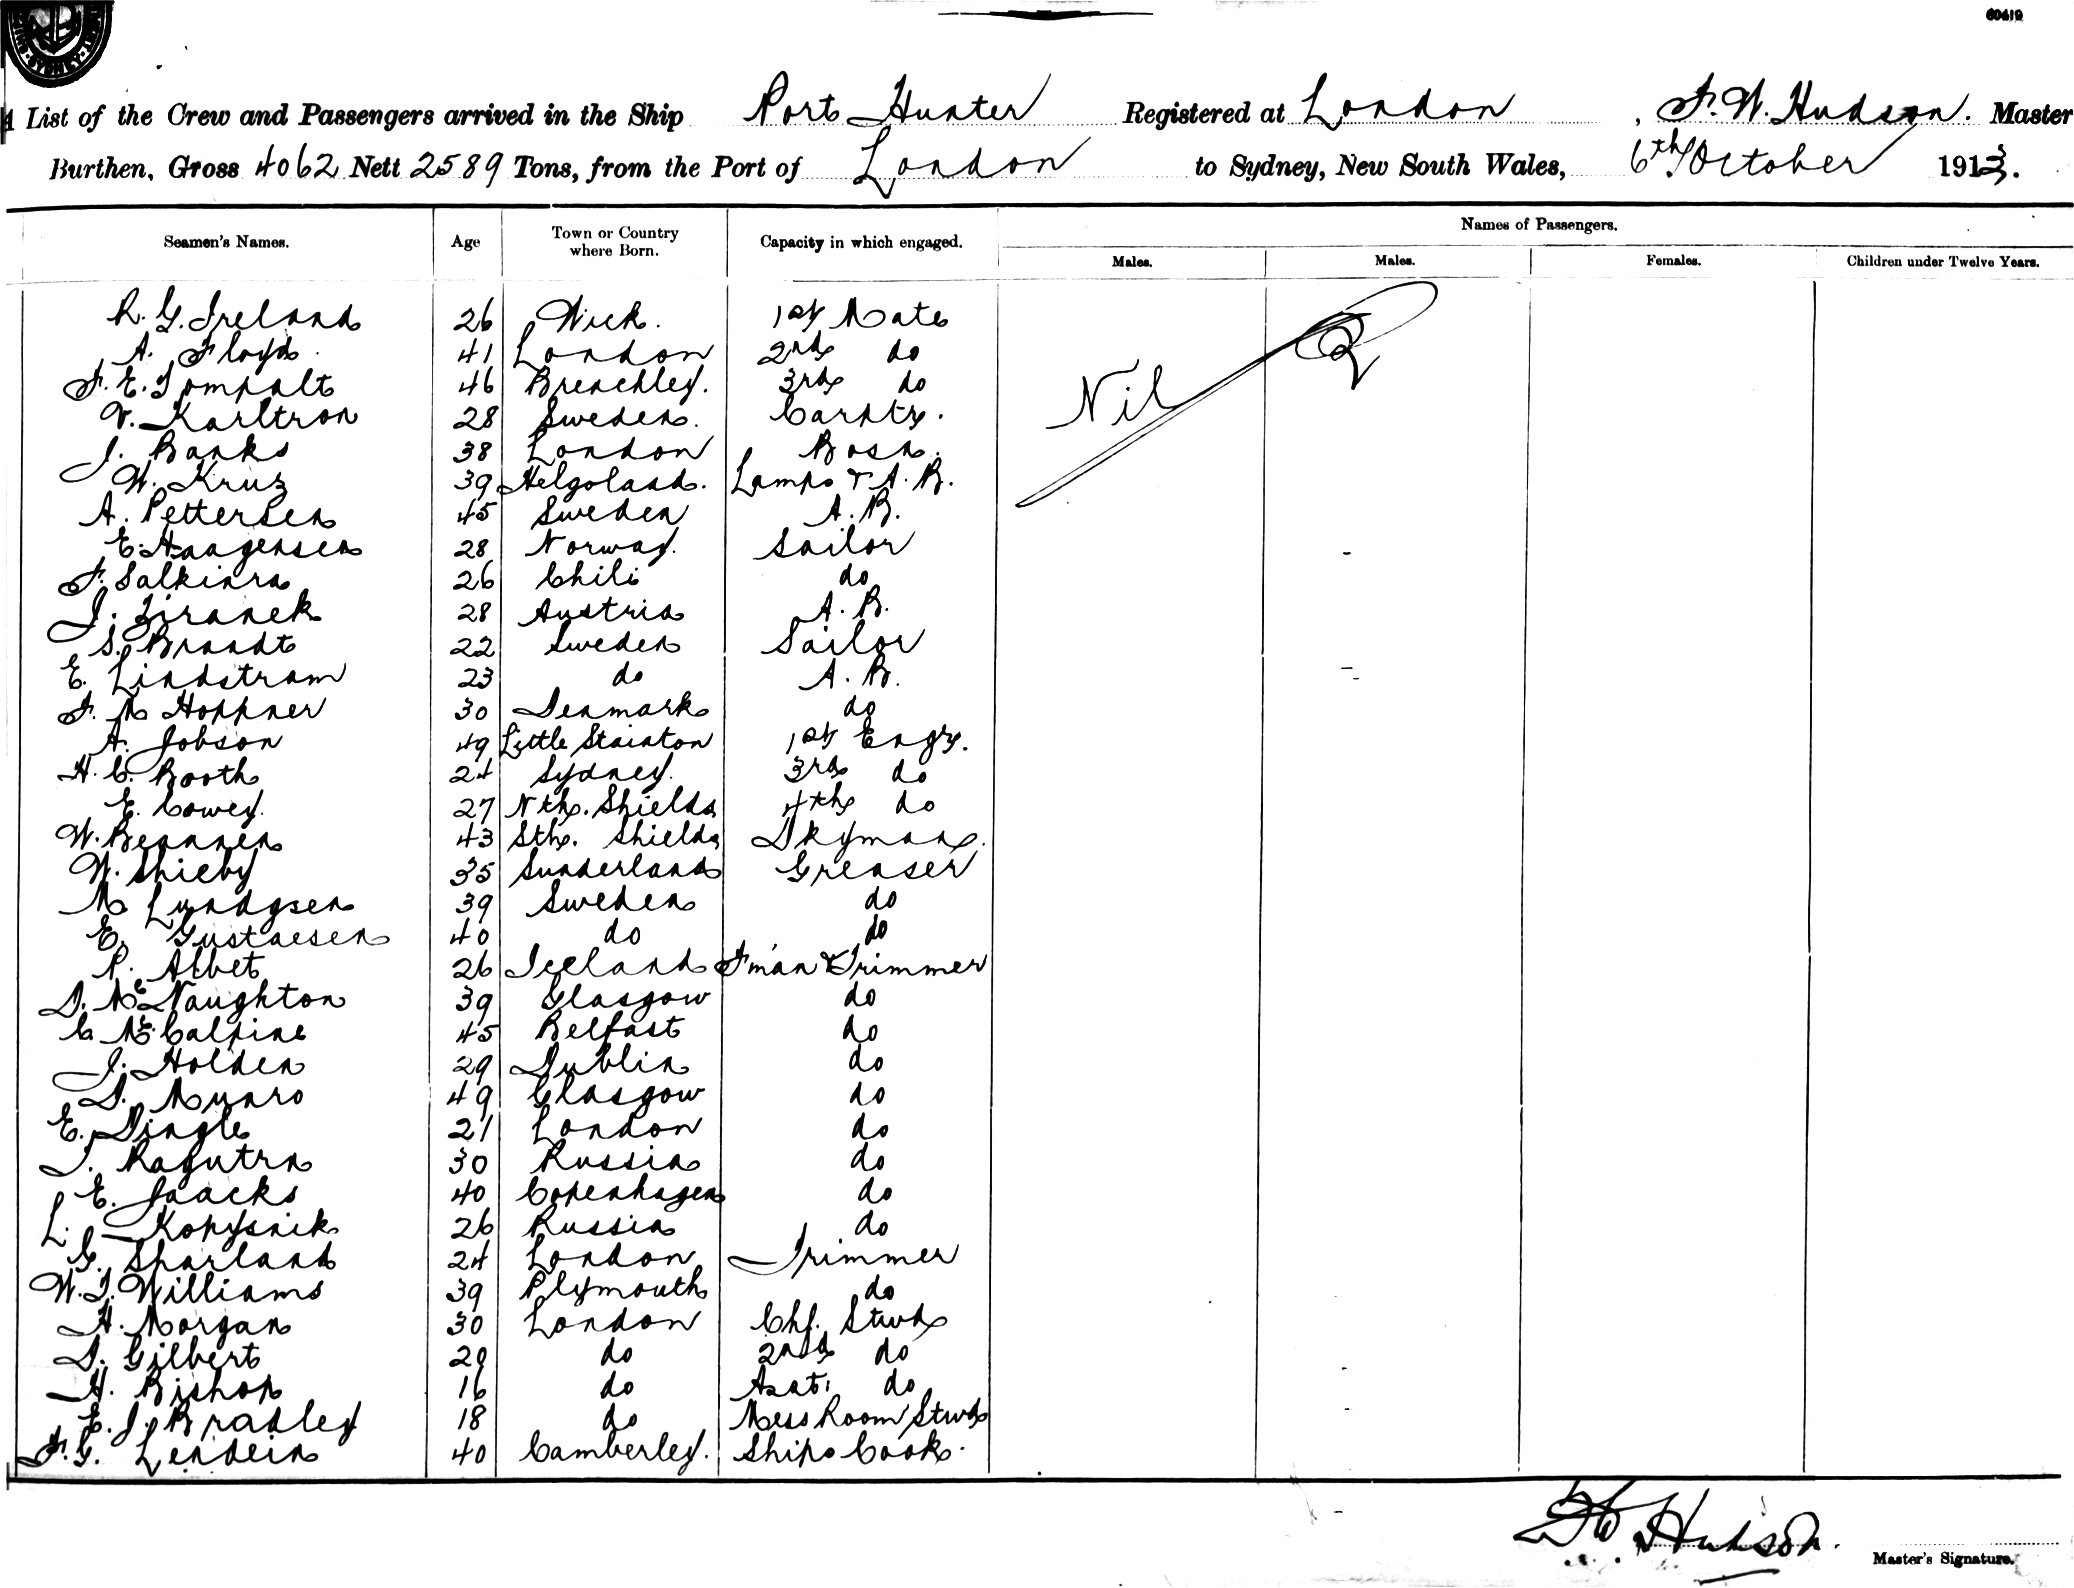 60419
SYDNEY
A List of the Crew and Passengers arrived in the Ship Port Hunter Registered at London, F. W. Hudson. Master
Burthen, Gross 4062 Nett 2589 Tons, from the Port of London to Sydney, New South Wales, 6th October 1913.
Names of Passengers.
Seamen's Names. Age Town or Country where Born. Capacity in which engaged. Males. Males. Females. Children under Twelve Years.
R. G. Ireland 26 Wick. 1st Mate
A. Floyd 41 London 2nd do
F. E. Tompalt 46 Brenchley. 3rd do
V. Karltron 28 Sweden. Carptr. Nil
J. Banks 38 London Bosn.
W. Kruz 39 Helgoland. Lamps & A. B.
A. Pettersen 45 Sweden A. B.
E. Haagensen 28 Norway. Sailor
F. Salkinra 26 Chili do
J. Ziranek 28 Austria A. B.
S. Brandt 22 Sweden Sailor
E. Lindstram 23 do A. B.
F. M Hoppner 30 Denmark do
A. Jobson 49 Little Stainton 1st Engr.
H. C. Booth 24 Sydney. 3rd do
E. Cowey. 27 Nth. Shields 4th do
W. Bennnen 43 Sth. Shields Dkyman.
W. Shieby 35 Sunderland Greaser
M Lundgsen 39 Sweden do
E. Gustaesen 40 do do
P. Albet 26 Iceland F'man & Trimmer
D. McNaughton 39 Glasgow do
C. McCalpine 45 Belfast do
J. Holden 29 Dublin do
D. Munro 49 Glasgow do
E. Dingle 21 London do
J. Ragutra 30 Russia do
E. Jaacks 40 Copenhagen do
L. Kopysnik 26 Russia do
G. Sparland 24 London Trimmer
W. J. Williams 39 Plymouth do
H. Morgan 30 London Chf. Stwd
D. Gilbert 20 do 2nd do
H. Bishop 16 do Asst. do
E. J. Bradley 18 do Mess Room Stwd
F. G. Lendein 40 Camberley. Ships Cook.
F W Hudson.
Master's Signature.